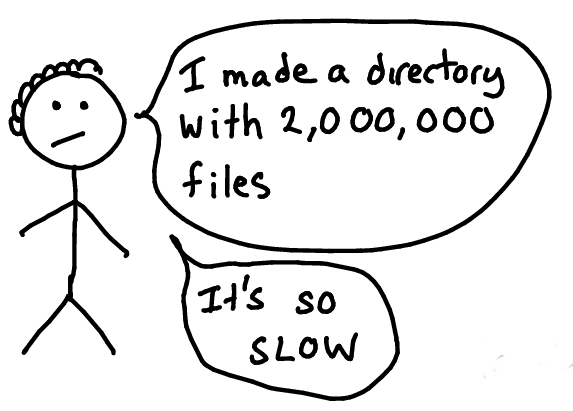 I made a directory
with 2,000,000
files
It's so
SLOW